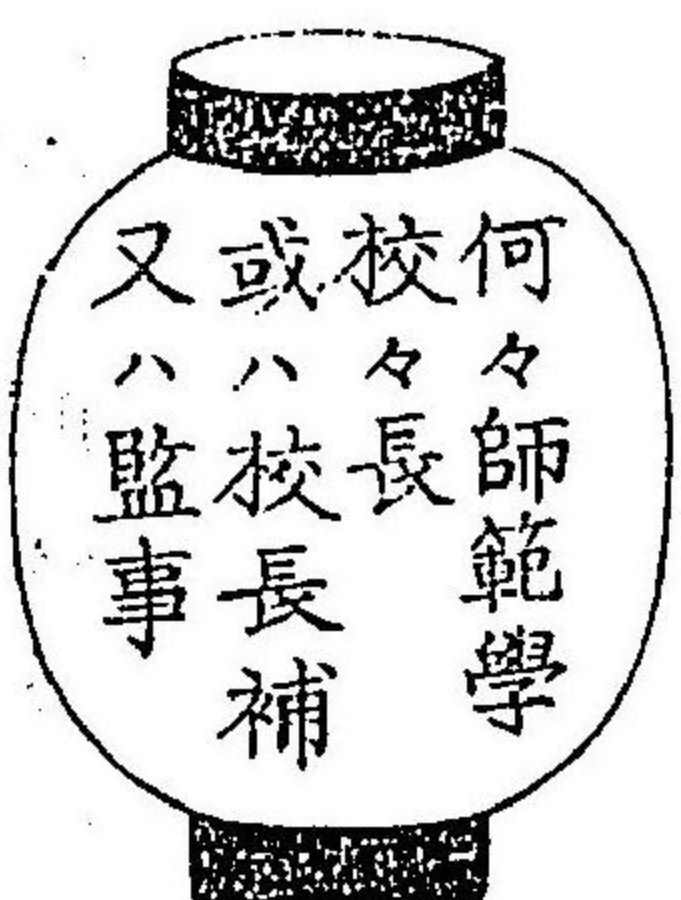 何々師範學
校々長
或ハ校長補
又ハ監事